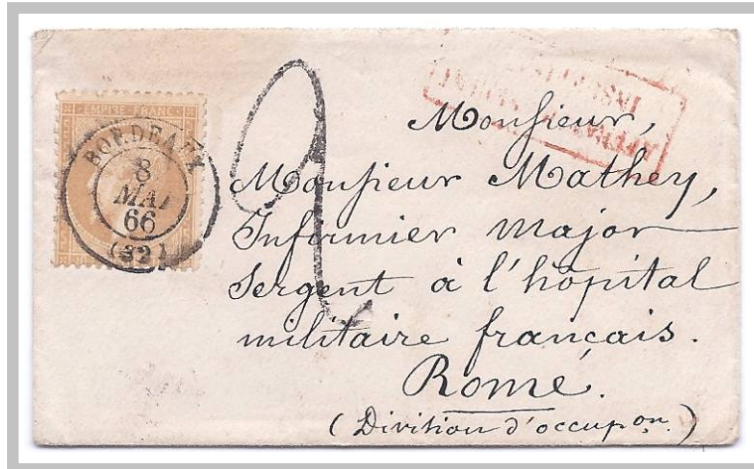 EMPIRE FRANC
BORDEAUX
8
MAI
66
(32)
2
AFFRANCHISSEMENT
INSUFFISANT
Monsieur,
Monsieur Mathey,
Infirmier major
Sergent à l'hôpital
militaire français.
Rome.
(Division d'occupon.)